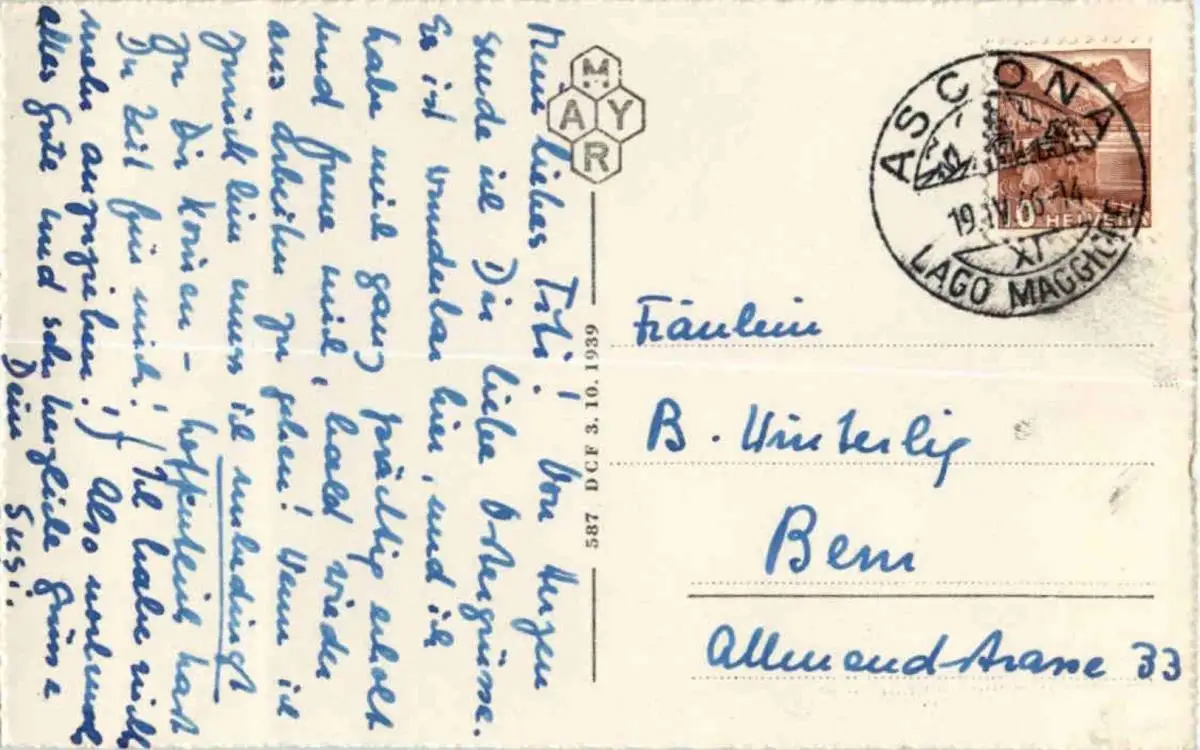 Mein liebes Titi! Von Herzen
sende ich Dir liebe Ostergrüsse.
Es ist wunderbar hier, und ich
habe mich ganz prächtig erholt
und freue mich, bald wieder
ans Arbeiten zu gehen! Wenn ich
zurück bin muss ich unbedingt
zu Dir kommen – hoffentlich hast
Du Zeit für mich! Ich habe nichts
mehr anzuziehen! Also nochmals
alles Gute und sehr herzliche Grüsse
Deine Susi.
MAYR
587 DCF 3.10.1939
ASCONA
19.IV. -14
XI
LAGO MAGGIORE
10 HELVETIA
Fräulein
B. Winterlig
Bern
Allmendstrasse 33